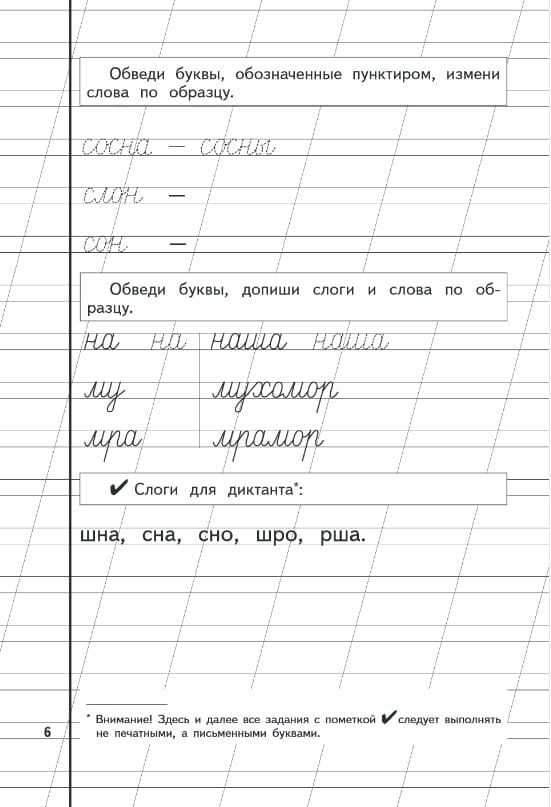 Обведи буквы, обозначенные пунктиром, измени
слова по образцу.
сосна — сосны
слон —
сон —
Обведи буквы, допиши слоги и слова по об-
разцу.
на на наша наша
му мухомор
мра мрамор
✔ Слоги для диктанта*:
шна, сна, сно, шро, рша.
* Внимание! Здесь и далее все задания с пометкой ✔ следует выполнять
не печатными, а письменными буквами.
6